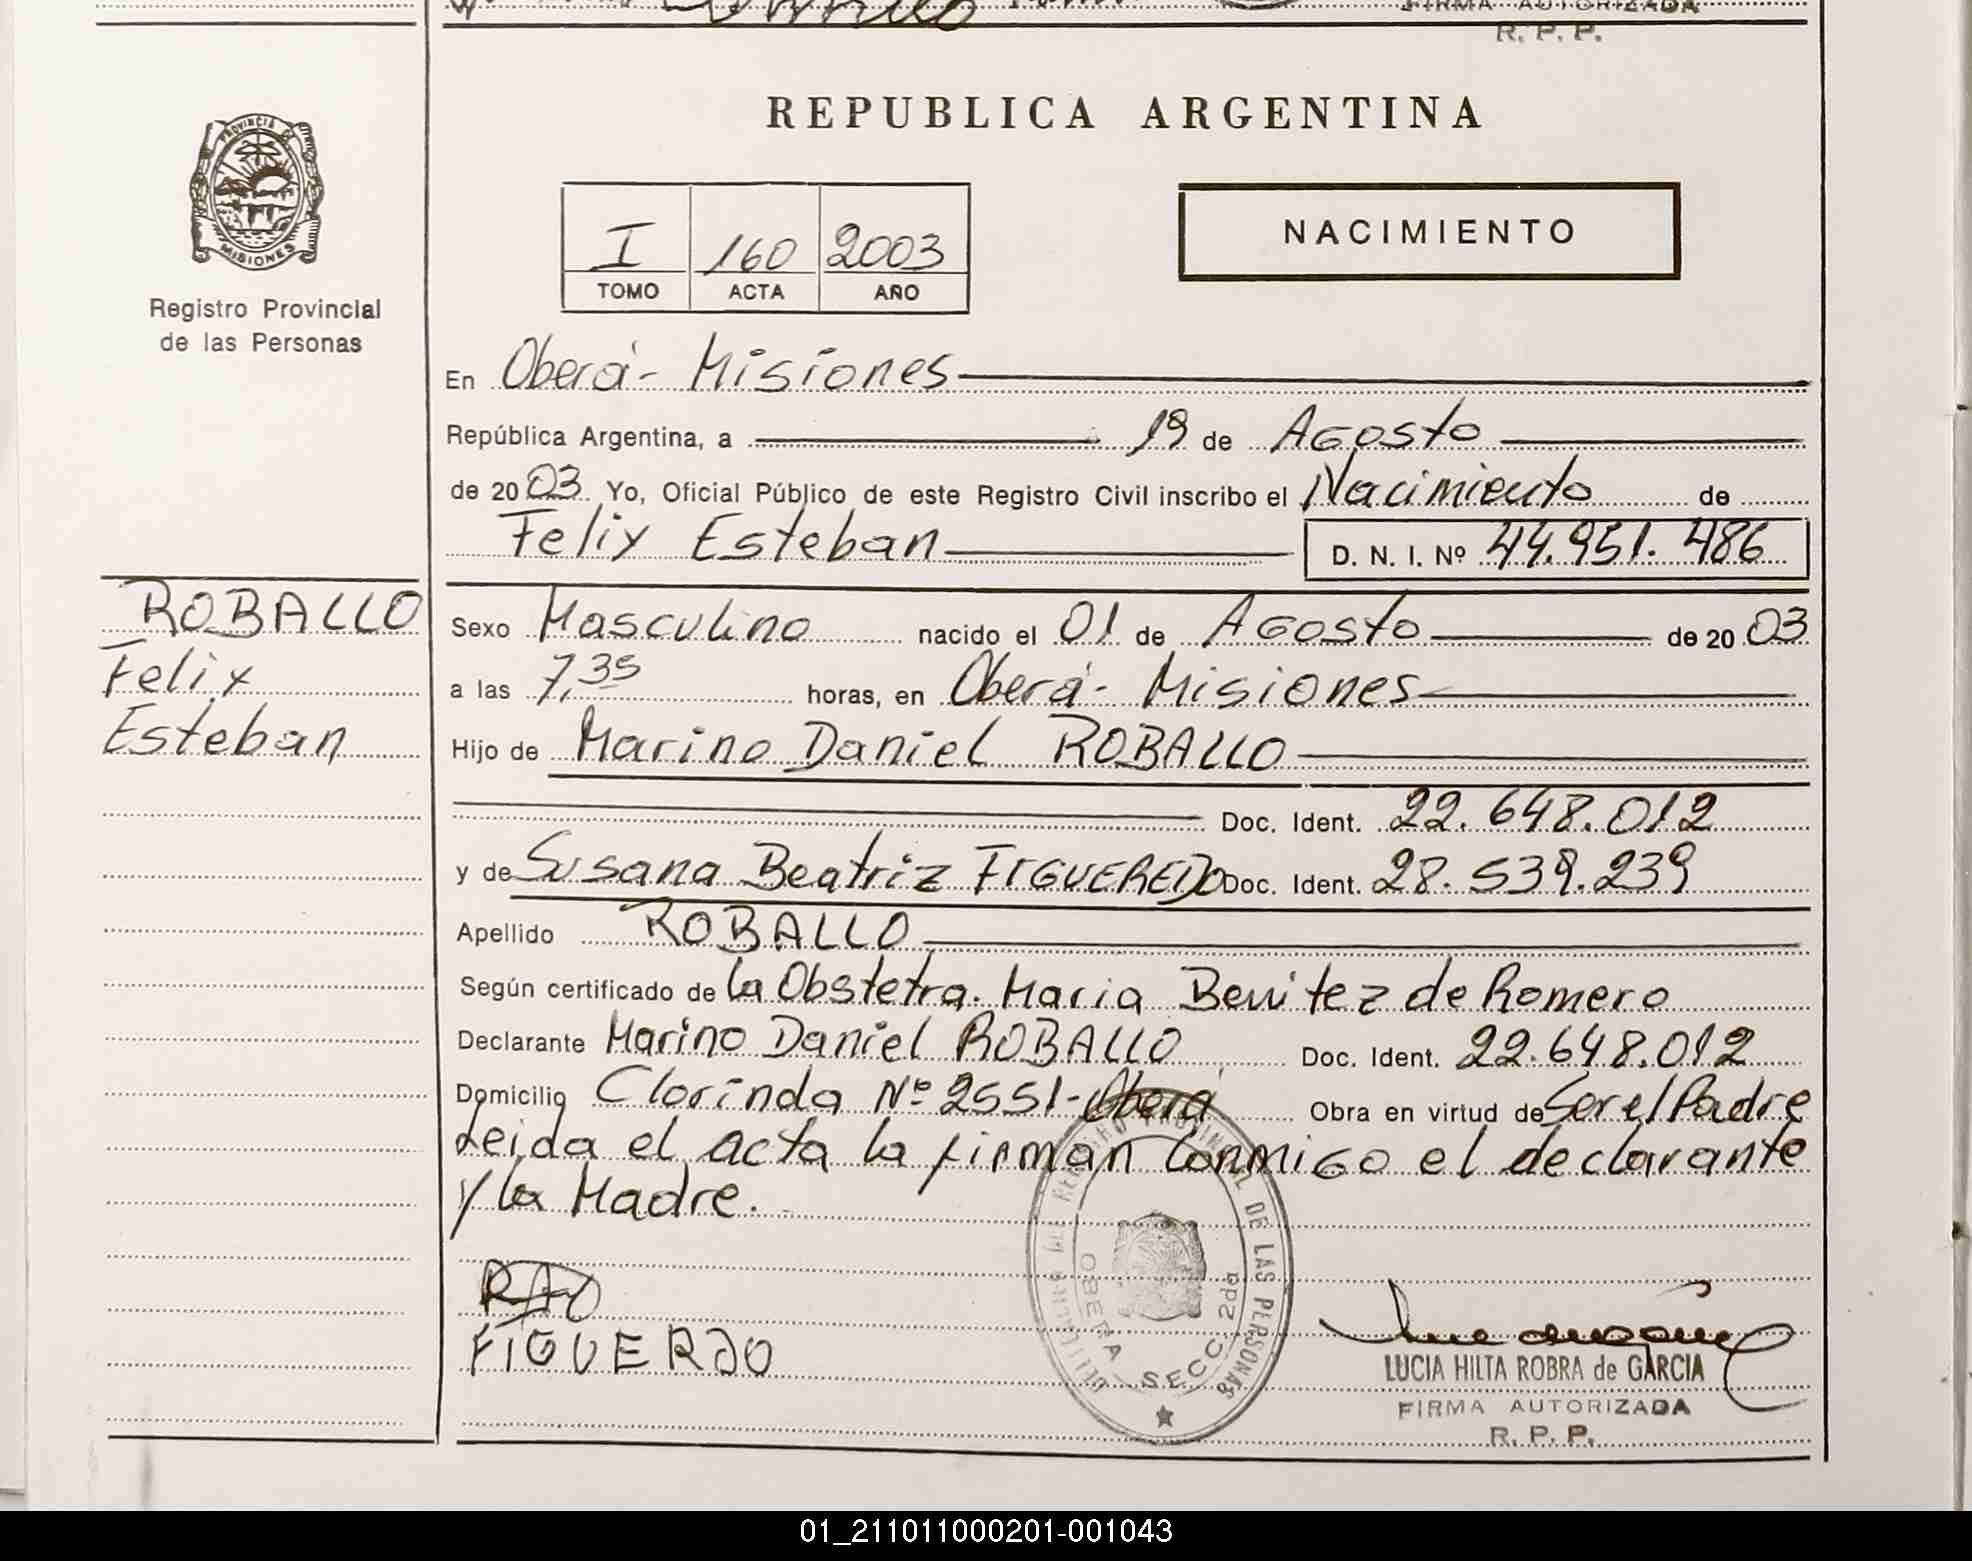 FIRMA AUTORIZADA
R. P. P.
PROVINCIA DE
MISIONES
Registro Provincial
de las Personas
REPUBLICA ARGENTINA
I 160 2003
TOMO ACTA AÑO
NACIMIENTO
En Oberá - Misiones
República Argentina, a 19 de Agosto
de 20 03 Yo, Oficial Público de este Registro Civil inscribo el Nacimiento de
Felix Esteban D. N. I. Nº 44.951.486
ROBALLO
Felix
Esteban
Sexo Masculino nacido el 01 de Agosto de 20 03
a las 7,35 horas, en Oberá - Misiones
Hijo de Marino Daniel ROBALLO
Doc. Ident. 22.648.012
y de Susana Beatriz FIGUEREDO Doc. Ident. 28.539.239
Apellido ROBALLO
Según certificado de la Obstetra. Maria Benitez de Romero
Declarante Marino Daniel ROBALLO Doc. Ident. 22.648.012
Domicilio Clorinda Nº 2551 - Oberá Obra en virtud de Ser el Padre
Leida el acta la firman Conmigo el declarante
y la Madre.
FIGUERDO
REGISTRO PROVINCIAL DE LAS PERSONAS
OBERA SECC. 2da
LUCIA HILTA ROBRA de GARCIA
FIRMA AUTORIZADA
R. P. P.
01_211011000201-001043